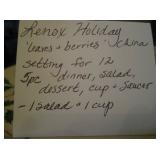 Lenox Holiday
"leaves + berries" China
setting for 12
5pc dinner, salad,
dessert, cup + saucer
- 1 salad + 1 cup